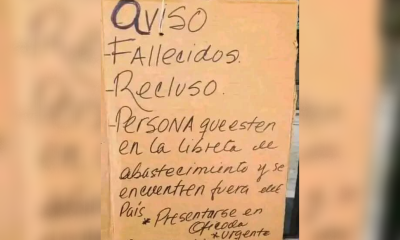 aviso
- Fallecidos.
- Recluso.
- Persona que esten
en la libreta de
abastecimiento y se
encuentren fuera del
País * Presentarse en
Oficoda
* urgente